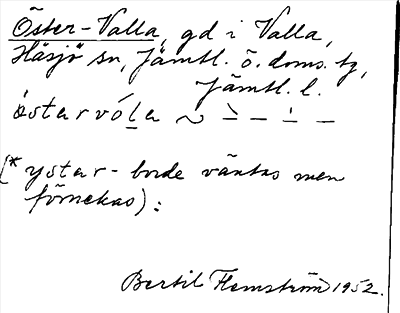 Öster-Valla, gd i Valla,
Häsjö sn, Jämtl. ö. doms. tg,
Jämtl. l.
östarvóla
(*ystar- borde väntas men
förnekas):
Bertil Flemström 1952.